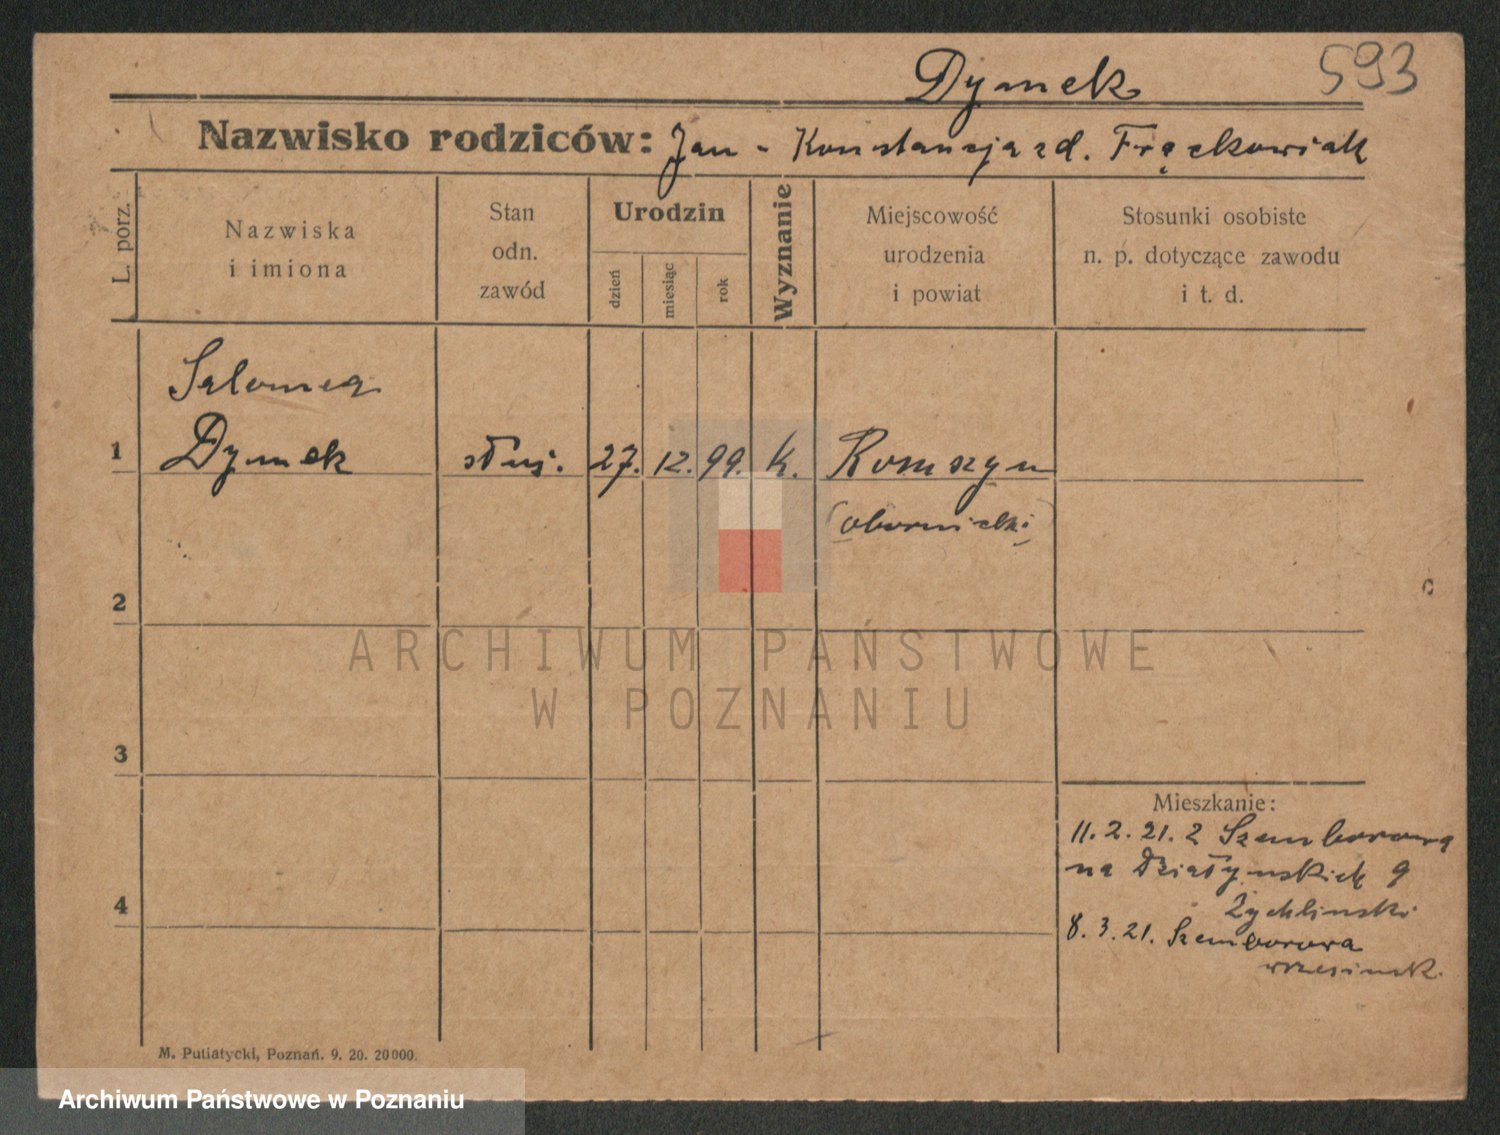 593
Dymek
Nazwisko rodziców: Jan - Konstancja zd. Frąckowiak
L. porz.
Nazwiska
i imiona
Stan
odn.
zawód
Urodzin
dzień
miesiąc
rok
Wyznanie
Miejscowość
urodzenia
i powiat
Stosunki osobiste
n. p. dotyczące zawodu
i t. d.
Salomea
1 Dymek służ. 27. 12. 99. k.
(obornicki)
2
ARCHIWUM PAŃSTWOWE
W POZNANIU
3
Mieszkanie:
11. 2. 21. z Szemborowa
na Działyńskich 9
Żychliński
4
8. 3. 21. Szemborowa
M. Putiatycki, Poznań. 9. 20. 20000.
Archiwum Państwowe w Poznaniu